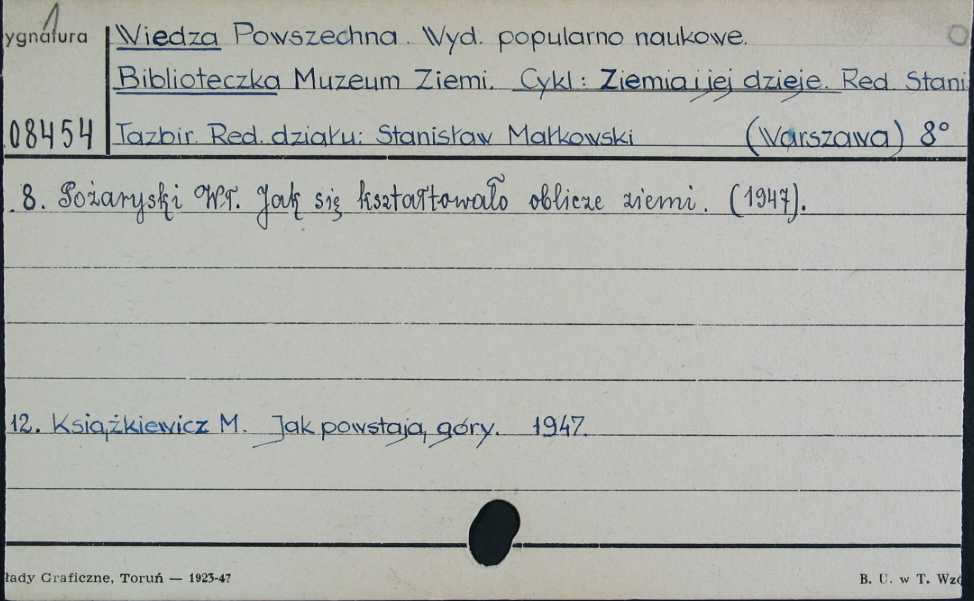 1
ygnatura
Wiedza Powszechna. Wyd. popularno naukowe.
Biblioteczka Muzeum Ziemi. Cykl: Ziemia i jej dzieje. Red. Stani
08454
Tazbir. Red. działu: Stanisław Małkowski (Warszawa) 8°
8. Pożaryski Wł. Jak się kształtowało oblicze ziemi. (1947).
12. Książkiewicz M. Jak powstają góry. 1947.
łady Graficzne, Toruń — 1923-47
B. U. w T. Wzó